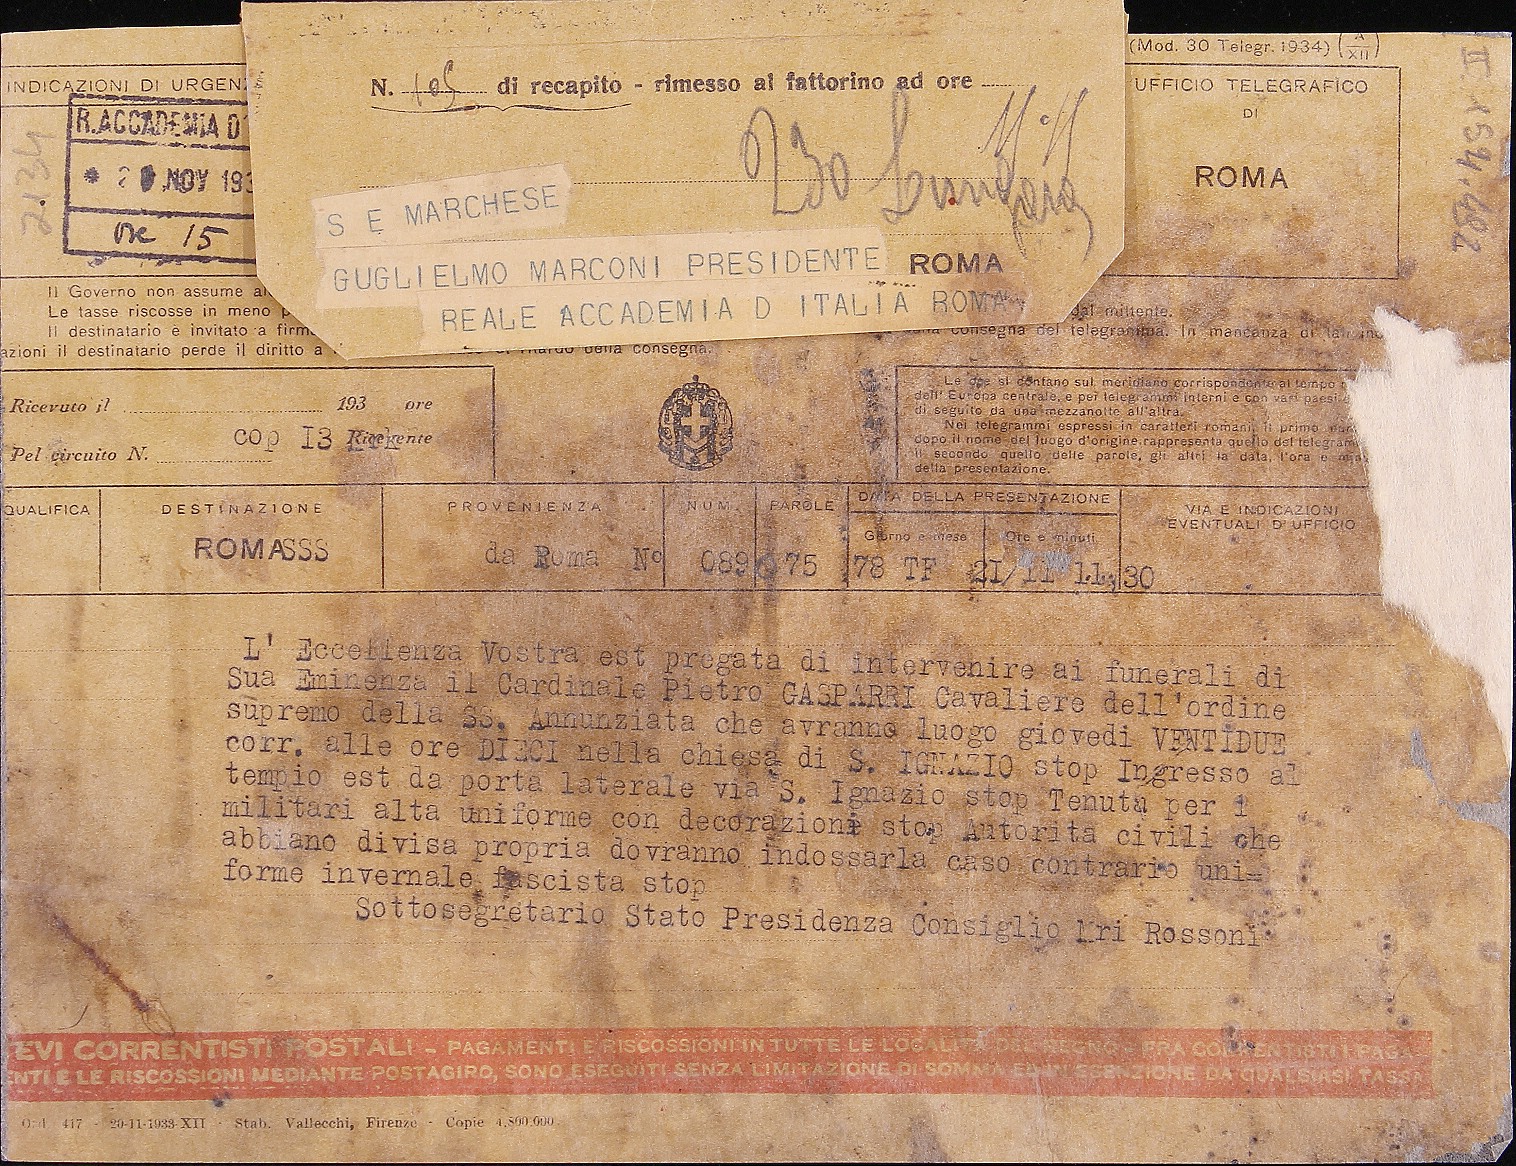 (Mod. 30 Telegr. 1934) A XII
INDICAZIONI DI URGEN
R. ACCADEMIA D'
NOV 193
ore 15
2134
N. 105 di recapito - rimesso al fattorino ad ore
S E MARCHESE
GUGLIELMO MARCONI PRESIDENTE ROMA
REALE ACCADEMIA D ITALIA ROMA
UFFICIO TELEGRAFICO
DI
ROMA
Il Governo non assume
Le tasse riscosse in meno
dal mittente.
Il destinatario è invitato a firm
consegna del telegramma. In mancanza di
azioni il destinatario perde il diritto a
ritardo della consegna.
Ricevuto il 193 ore
Pel circuito N. cop I3 Ricevente
Le ore si contano sul meridiano corrispondente al tempo
dell' Europa centrale, e per telegrammi interni e con vari paesi
di seguito da una mezzanotte all'altra.
Nei telegrammi espressi in caratteri romani, il primo
dopo il nome del luogo d'origine rappresenta quello del telegram
il secondo quello delle parole, gli altri la data, l'ora e
della presentazione.
QUALIFICA DESTINAZIONE PROVENIENZA NUM. PAROLE DATA DELLA PRESENTAZIONE VIA E INDICAZIONI
EVENTUALI D'UFFICIO
Giorno e mese Ore e minuti
ROMASSS da Roma N° 089 75 78 TF 21/11 11,30
L' Eccellenza Vostra est pregata di intervenire ai funerali di
Sua Eminenza il Cardinale Pietro GASPARRI Cavaliere dell'ordine
supremo della SS. Annunziata che avranno luogo giovedi VENTIDUE
corr. alle ore DIECI nella chiesa di S. IGNAZIO stop Ingresso al
tempio est da porta laterale via S. Ignazio stop Tenuta per i
militari alta uniforme con decorazioni stop Autorità civili che
abbiano divisa propria dovranno indossarla caso contrario uni=
forme invernale fascista stop
Sottosegretario Stato Presidenza Consiglio Mri Rossoni
EVI CORRENTISTI POSTALI - PAGAMENTI E RISCOSSIONI IN TUTTE LE LOCALITÀ DEL REGNO FRA CORRENTISTI I PAGA
NTI E LE RISCOSSIONI MEDIANTE POSTAGIRO, SONO ESEGUITI SENZA LIMITAZIONE DI SOMMA ED IN ESENZIONE DA QUALSIASI TASSA
Ord. 417 - 20-11-1933-XII - Stab. Vallecchi, Firenze - Copie 4.800.000